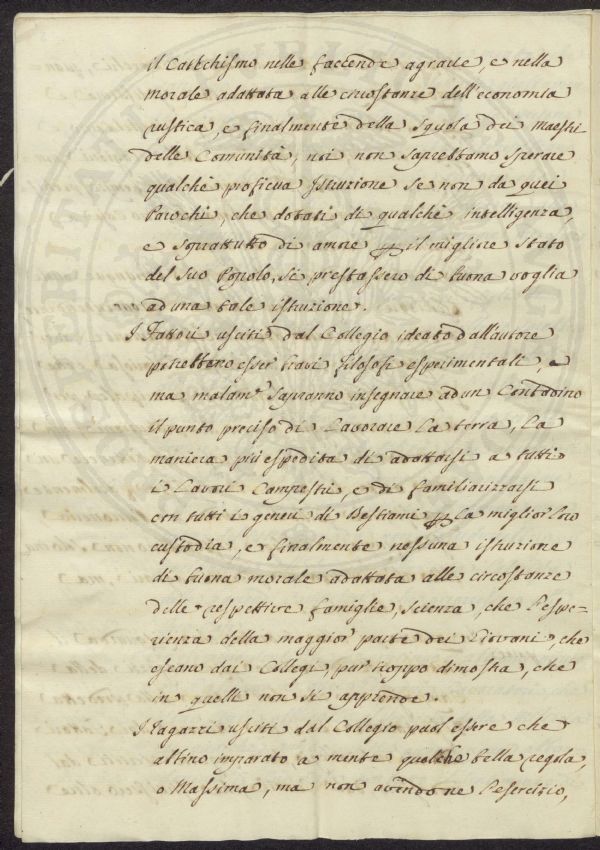 il Catechismo nelle faccende agrarie, e nella
morale adattata alle circostanze dell'economia
rustica, e finalmente della Squola dei Maestri
delle Comunità, noi non saprebbamo sperare
qualche proficua Istruzione se non da quei
Parochi, che dotati di qualche intelligenza,
e soprattutto di amore il migliore stato
del suo Popolo, si prestassero di buona voglia
ad una tale istruzione.
I Fattori usciti dal Collegio ideato dall'autore
potrebbero esser bravi filosofi esperimentali, e
ma malam.e sapranno insegnare ad un Contadino
il punto preciso di Lavorare La terra, La
maniera più espedita di adattarsi a tutti
i Lavori Campestri, e di familiarizzarsi
con tutti i generi di Bestiami La miglior loro
custodia, e finalmente nessuna istruzione
di buona morale adattata alle circostanze
delle respettive famiglie, scienza, che l'espe-
rienza della maggior parte dei Giovani, che
escano dai Collegi, pur troppo dimostra, che
in quelli non si apprende.
I Ragazzi usciti dal Collegio puol essere che
abbino imparato a mente qualche bella regola,
o Massima, ma non avendone l'esercizio,